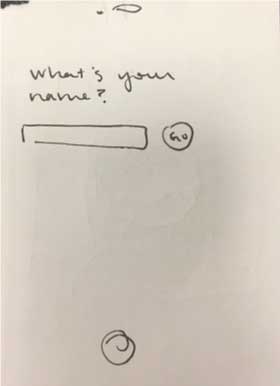 What's your
name?
GO